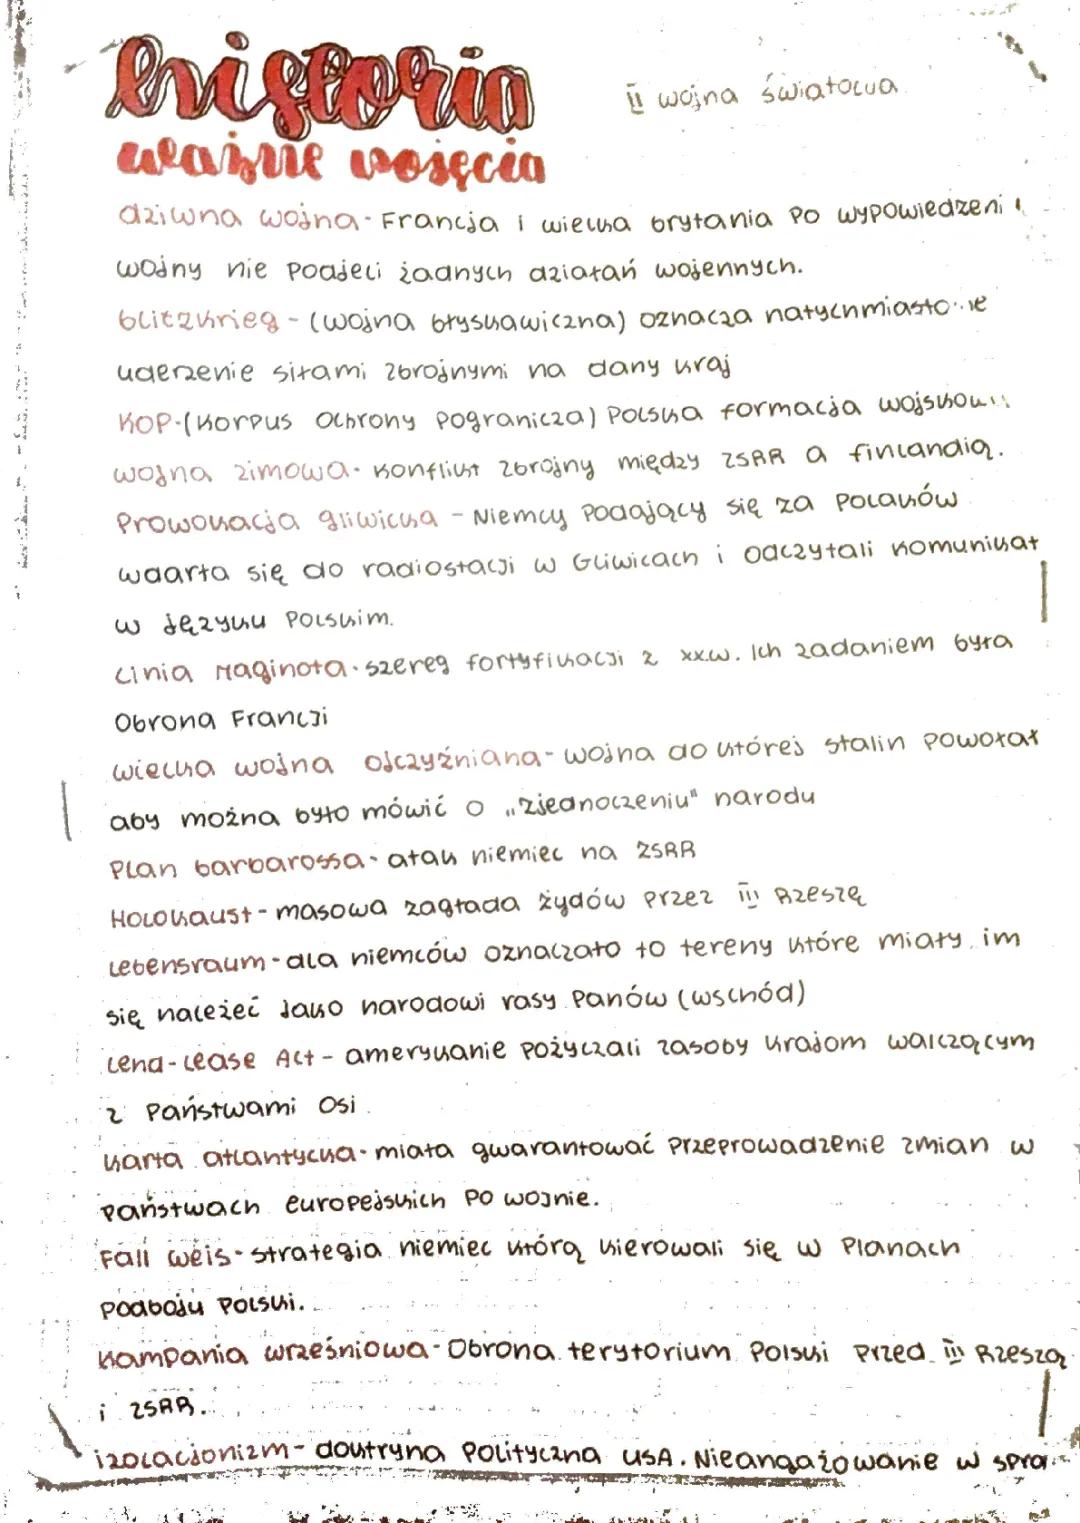 historia
II wojna światowa
ważne pojęcia
dziwna wojna - Francja i wielka brytania po wypowiedzeni
wojny nie podjeli żadnych działań wojennych.
blitzkrieg - (wojna błyskawiczna) oznacza natychmiasto
uderzenie siłami zbrojnymi na dany kraj
KOP - (Korpus Ochrony Pogranicza) Polska formacja
wojna zimowa - konflikt zbrojny między ZSRR a finlandią.
Prowokacja gliwicka - Niemcy podający się za polaków
wdarła się do radiostacji w Gliwicach i odczytali komunikat
w języku polskim.
Linia Maginota - szereg fortyfikacji z xx.w. Ich zadaniem była
Obrona Francji
wielka wojna ojczyźniana - wojna do której stalin powołał
aby można było mówić o „zjednoczeniu" narodu
Plan barbarossa - atak niemiec na ZSRR
Holokaust - masowa zagłada żydów przez III Rzeszę
Lebensraum - dla niemców oznaczało to tereny które miały im
się należeć jako narodowi rasy panów (wschód)
Lend-lease Act - amerykanie pożyczali zasoby krajom walczącym
z Państwami Osi
karta atlantycka - miała gwarantować przeprowadzenie zmian w
państwach europejskich po wojnie.
Fall weis - strategia niemiec którą kierowali się w planach
podboju Polski.
Kampania wrześniowa - Obrona terytorium Polski przed III Rzeszą
i ZSRR.
izolacjonizm - doktryna polityczna USA. Nieangażowanie w